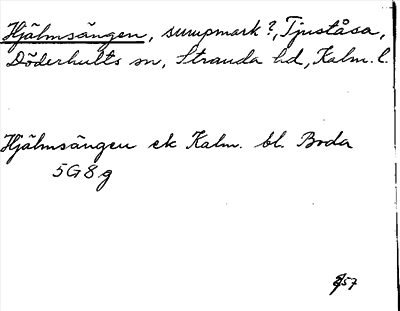 Hjälmsängen, sumpmark?, Tjuståsa,
Döderhults sn, Stranda hd, Kalm. l.
Hjälmsängen ek Kalm. bl. Boda
5G8g
57